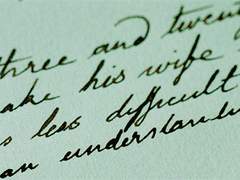 three and twenty
make his wife
less difficult
an understand